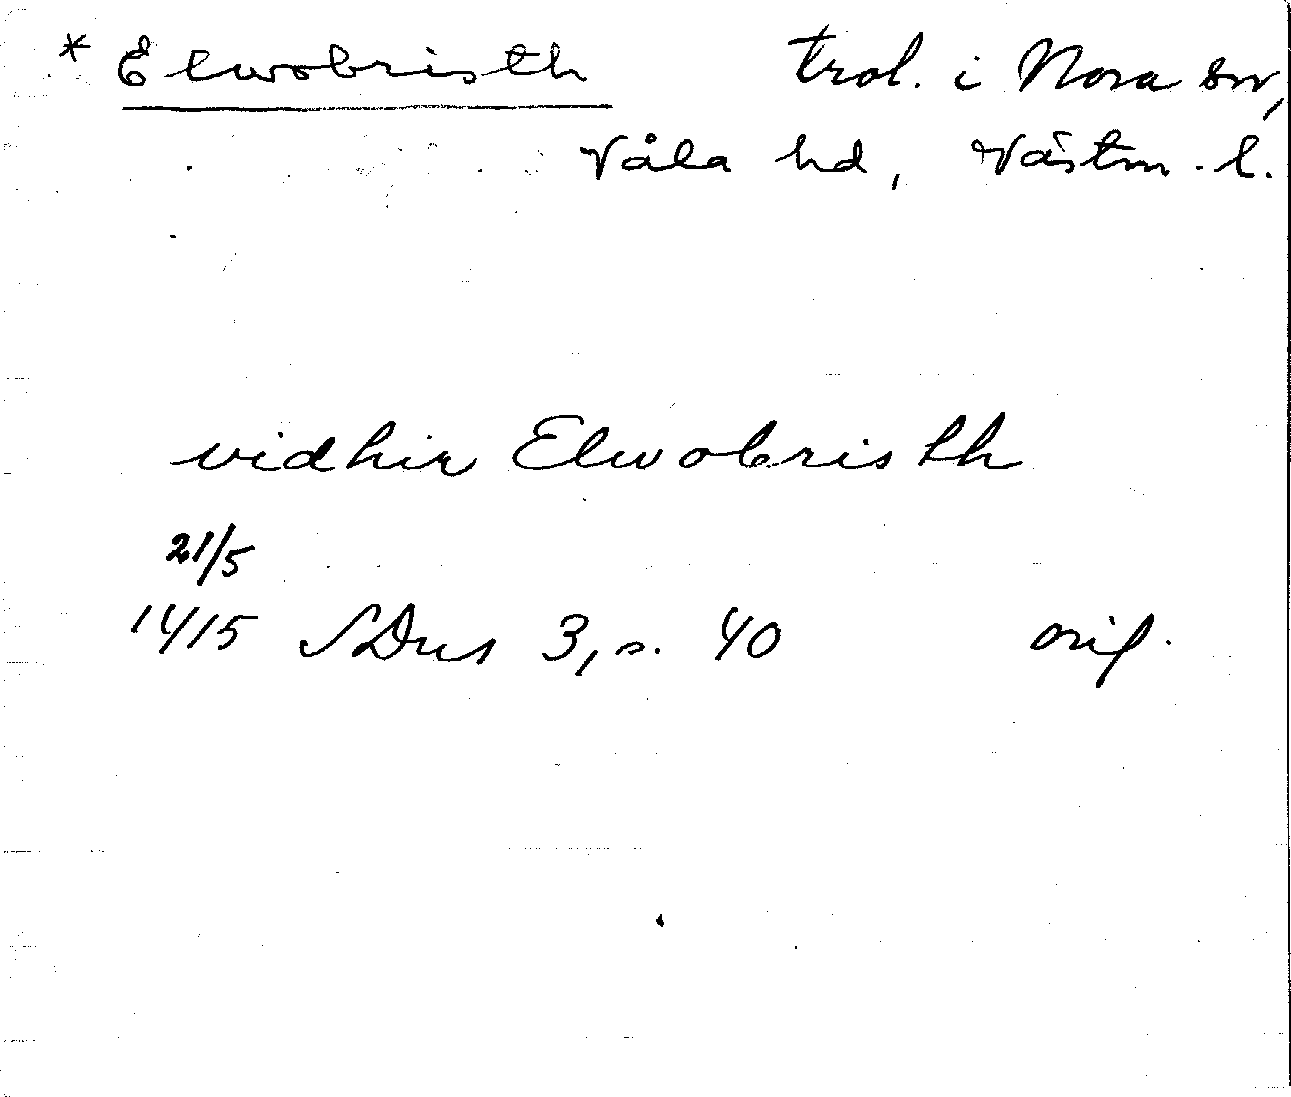 * Elwobristh trol. i Nora sn,
Våla hd, Västm. l.
vidhir Elwobristh
21/5
1415 SDns 3, s. 40 orig.